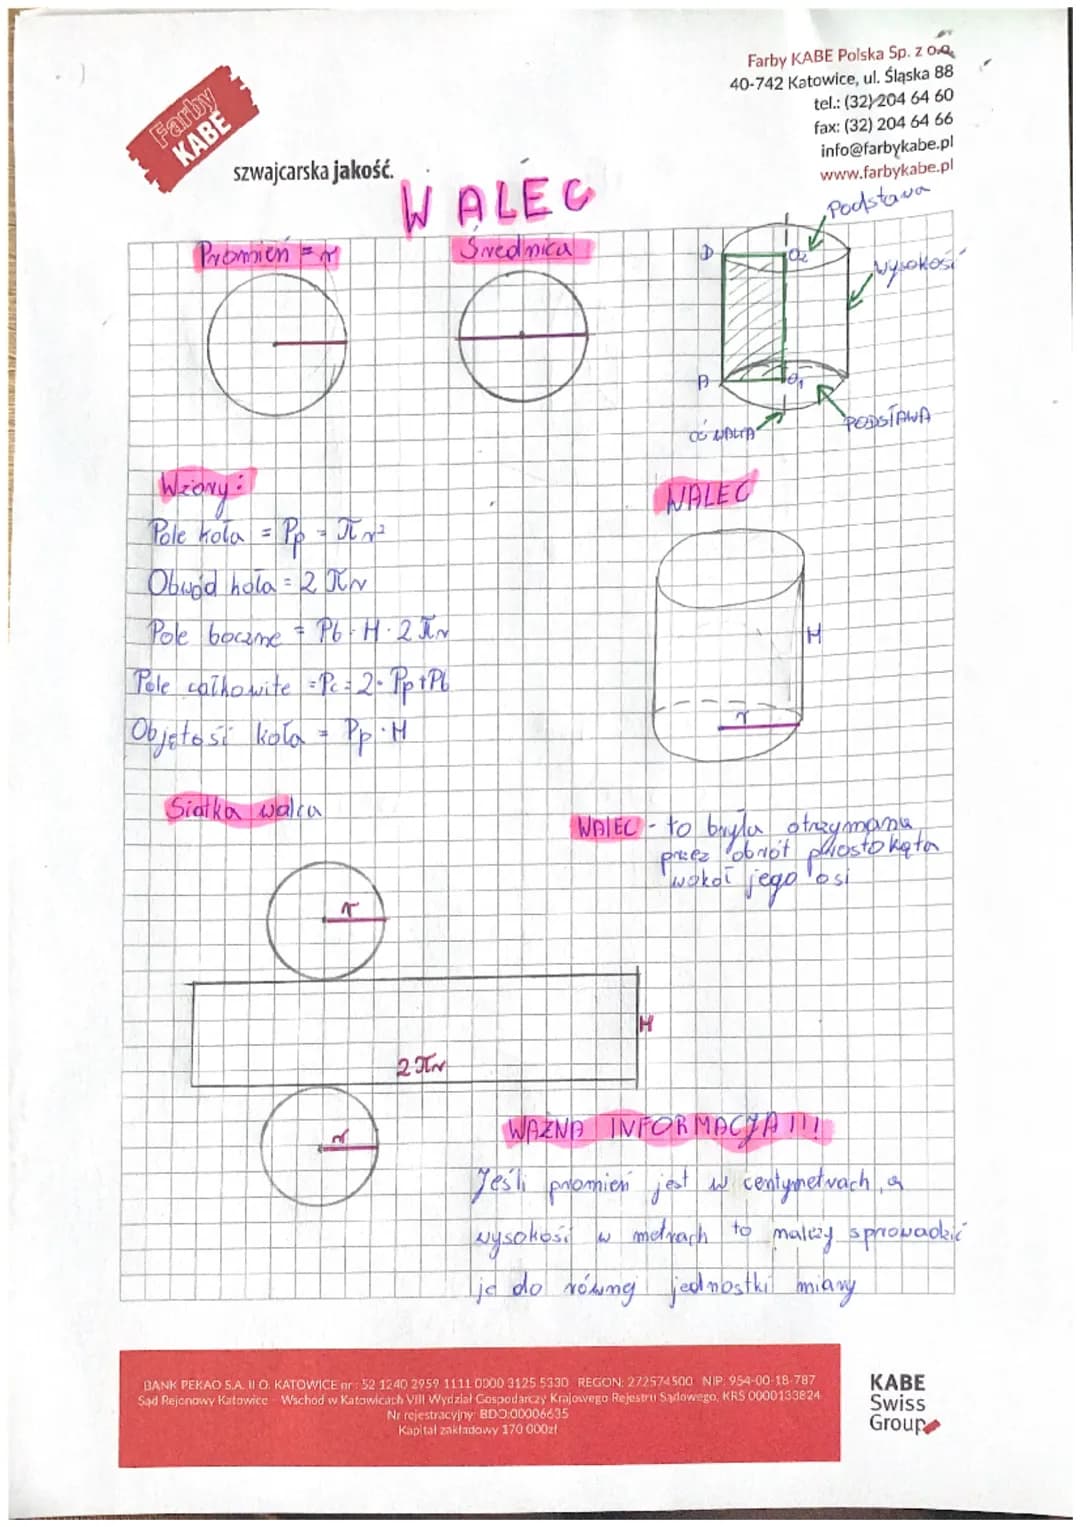 Farby KABE Polska Sp. z o.o.
40-742 Katowice, ul. Śląska 88
tel.: (32) 204 64 60
fax: (32) 204 64 66
info@farbykabe.pl
www.farbykabe.pl
Farby
KABE
szwajcarska jakość.
WALEC
Promień = r
Średnica
Podstawa
D
O2
wysokość
A
O1
OŚ WALCA
PODSTAWA
Wzory:
Pole koła = Pp = π r²
Obwód koła = 2 πr
Pole boczne = Pb = H · 2 πr
Pole całkowite = Pc = 2 · Pp + Pb
Objętość koła = Pp · H
WALEC
H
r
Siatka walca
r
H
2 πr
r
WALEC - to bryła otrzymana
przez obrót prostokąta
wokół jego osi
WAŻNA INFORMACJA !!!
Jeśli promień jest w centymetrach, a
wysokość w metrach to należy sprowadzić
je do równej jednostki miary
BANK PEKAO S.A. II O. KATOWICE nr : 52 1240 2959 1111 0000 3125 5330 REGON: 272574500 NIP: 954-00-18-787
Sąd Rejonowy Katowice Wschod w Katowicach VIII Wydział Gospodarczy Krajowego Rejestru Sądowego, KRS 0000133824
Nr rejestracyjny: BDO:00006635
Kapitał zakładowy 170 000zł
KABE
Swiss
Group